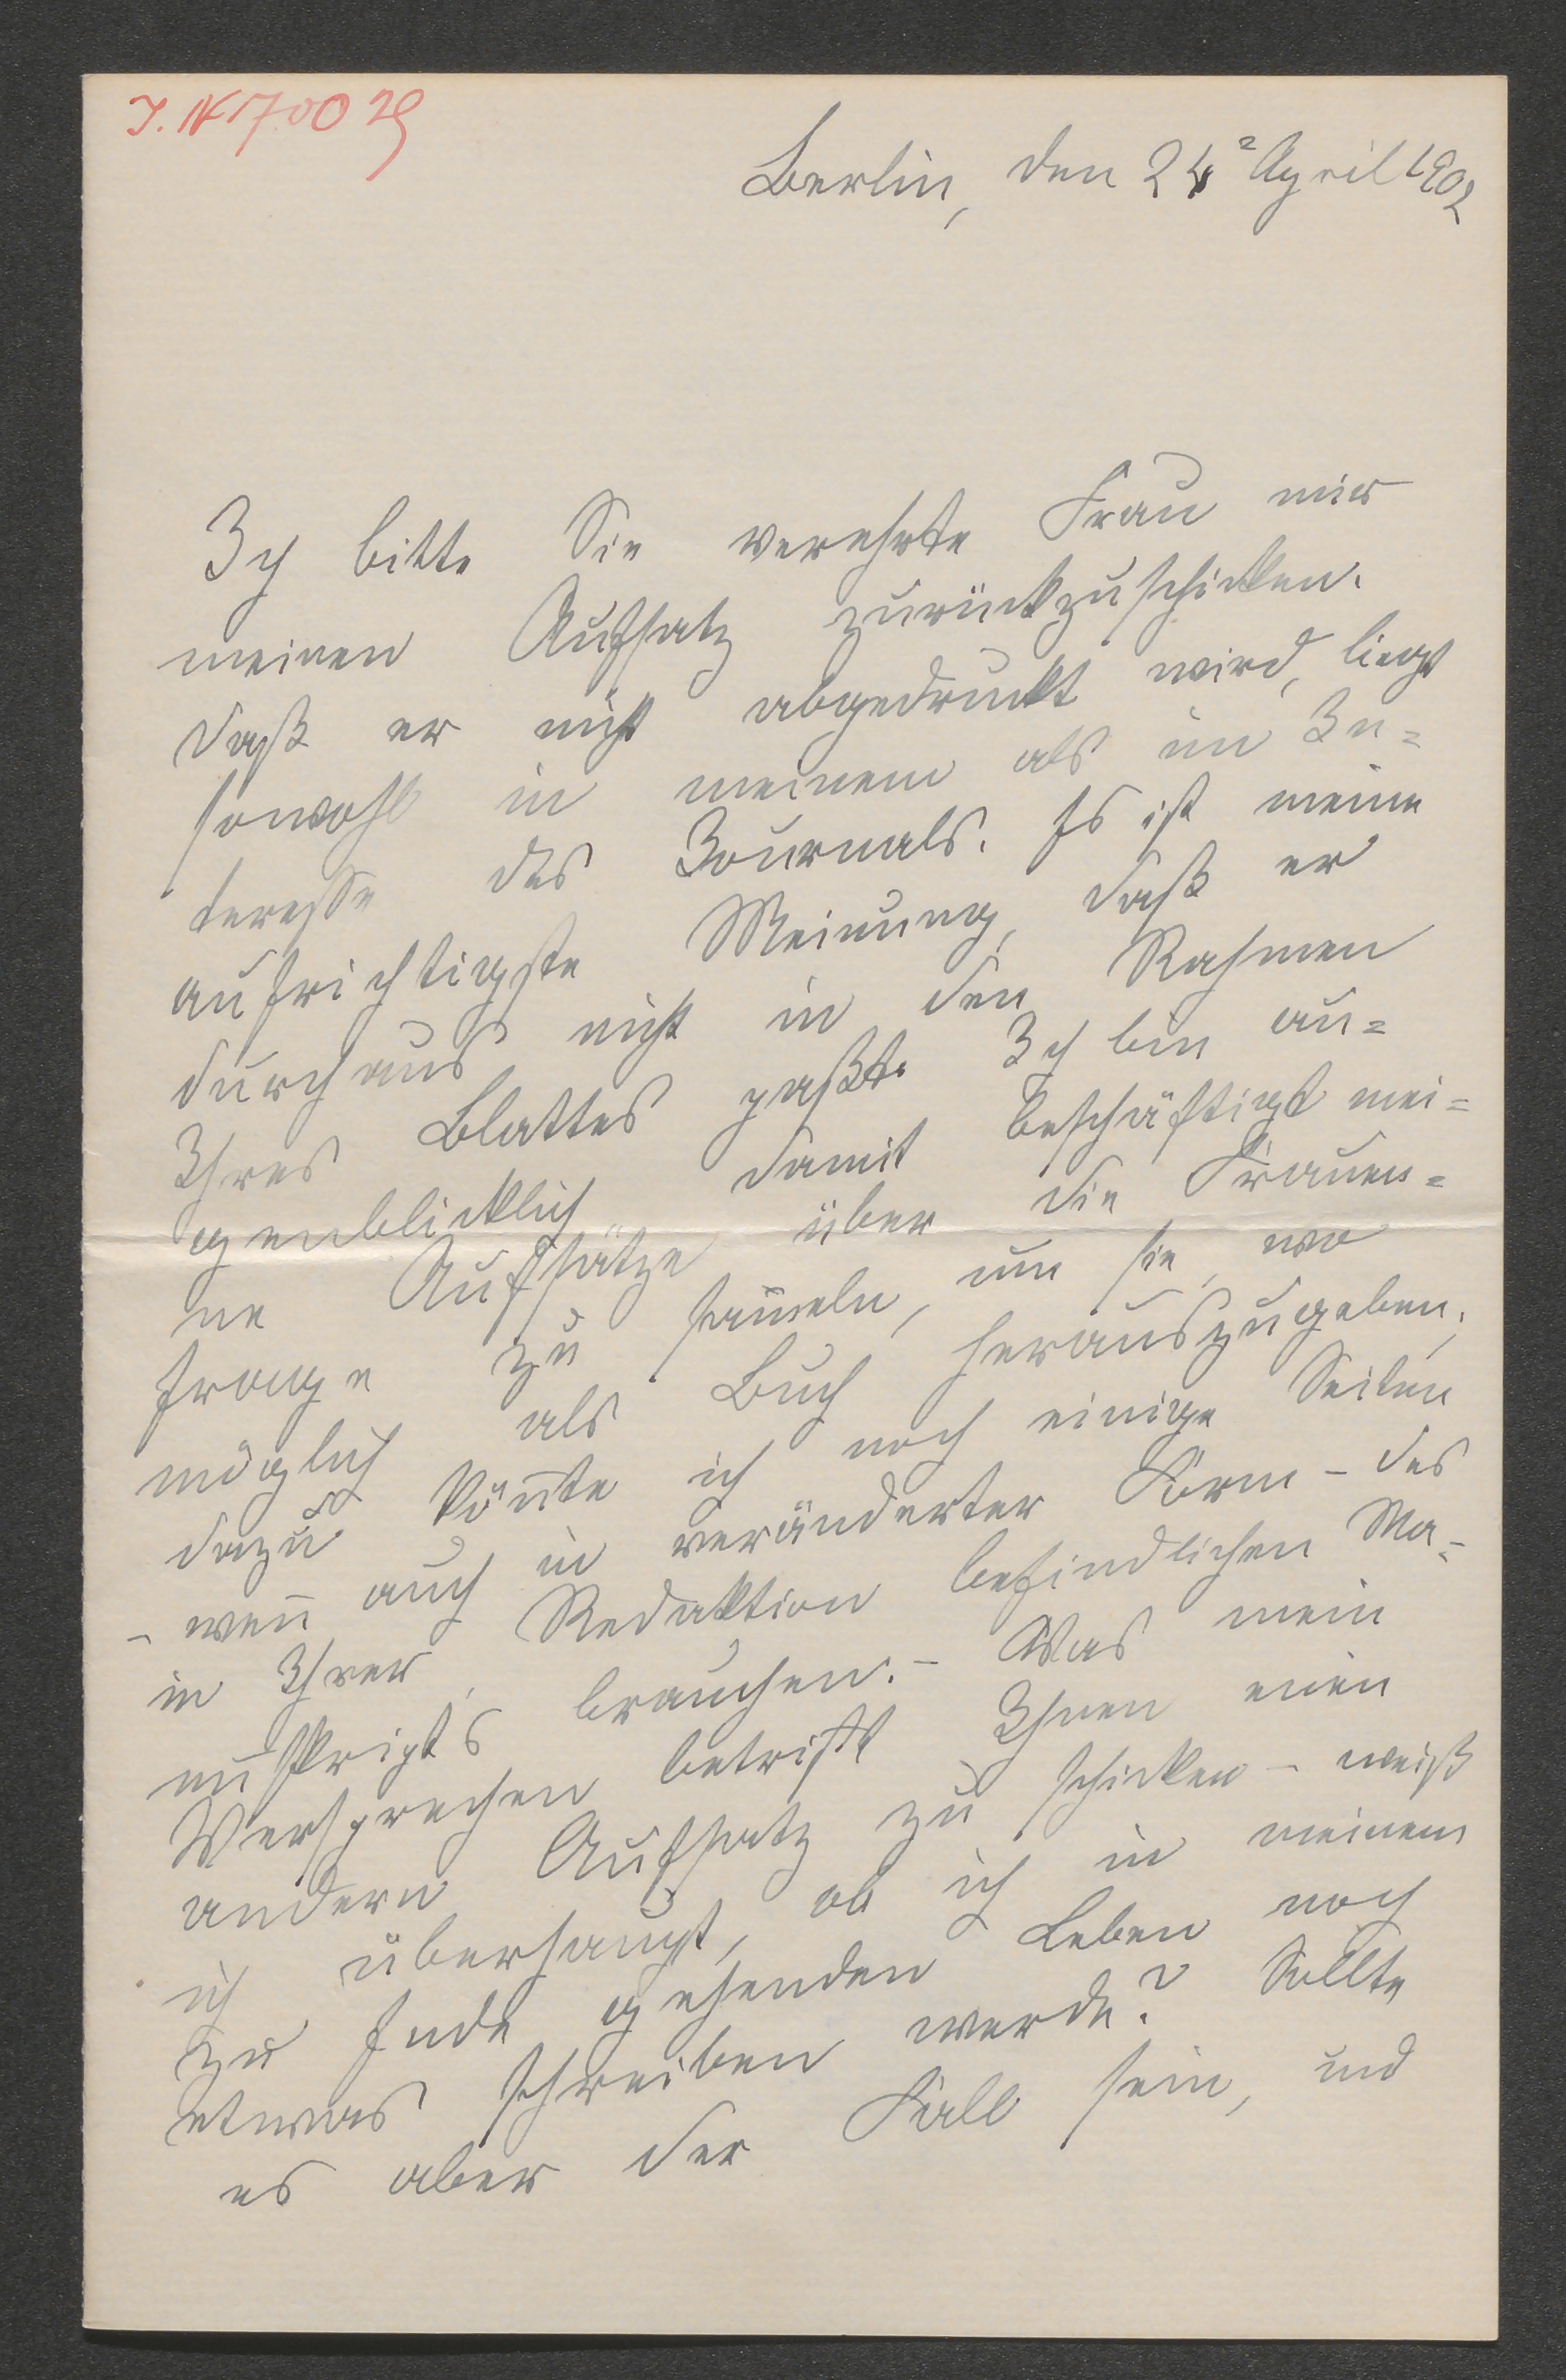 J. N 170029
Berlin, den 24 April 1902
Ich bitte Sie verehrte Frau mir
meinen Aufsatz zurückzuschicken.
Daß er nicht abgedruckt wird, liegt
sowohl in meinem als im In=
teresse des Journals. Es ist meine
aufrichtigste Meinung, daß er
durchaus nicht in den Rahmen
Ihres Blattes paßte. Ich bin au=
genblicklich damit beschäftigt mei=
ne Aufsätze über die Frauen=
frage zu sam̄eln, um sie, wo
möglich als Buch herauszugeben,
dazu kön̄te ich noch einige Seiten
- wen̄ auch in veränderter Form - des
in Ihrer Redaktion befindlichen Ma=
nuskripts brauchen. - Was mein
Versprechen betrifft Ihnen einen
andern Aufsatz zu schicken - weiß
ich überhaupt, ob ich in meinem
zu Ende gehenden Leben noch
etwas schreiben werde? Sollte
es aber der Fall sein, und